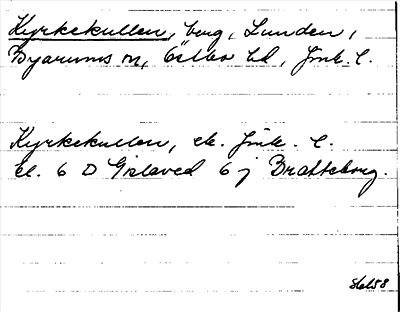 Kyrkekullen, berg, Lunden,
Byarums sn, Östbo hd, Jönk. l.
Kyrkekullen, ek. Jönk. l.
bl. 6 D Gislaved 6 j Bratteborg.